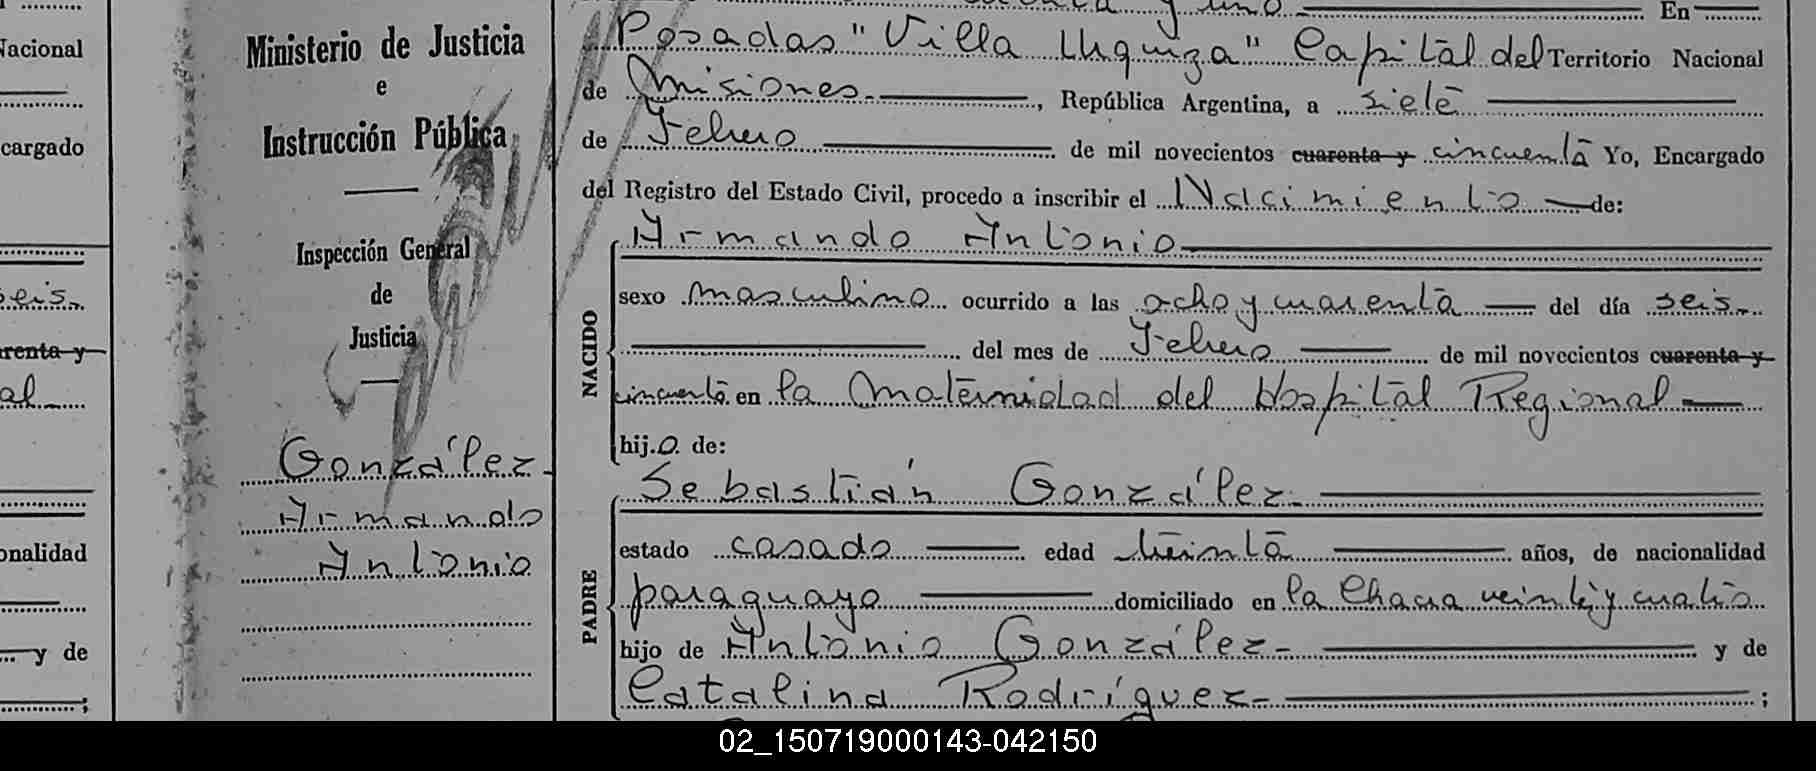 Nacional
cargado
seis
renta y
al
onalidad
y de
;
Ministerio de Justicia
e
Instrucción Pública
Inspección General
de
Justicia
González
Armando
Antonio
y uno En
Posadas "Villa Urquiza" Capital del Territorio Nacional
de Misiones, República Argentina, a siete
de Febrero de mil novecientos cuarenta y cincuenta Yo, Encargado
del Registro del Estado Civil, procedo a inscribir el Nacimiento de:
NACIDO
Armando Antonio
sexo masculino ocurrido a las ocho y cuarenta del día seis
del mes de Febrero de mil novecientos cuarenta y
cincuenta en la Maternidad del Hospital Regional
hijo de:
PADRE
Sebastián González
estado casado edad treinta años, de nacionalidad
paraguayo domiciliado en la Chacra veinte y cuatro
hijo de Antonio González y de
Catalina Rodríguez ;
02_150719000143-042150